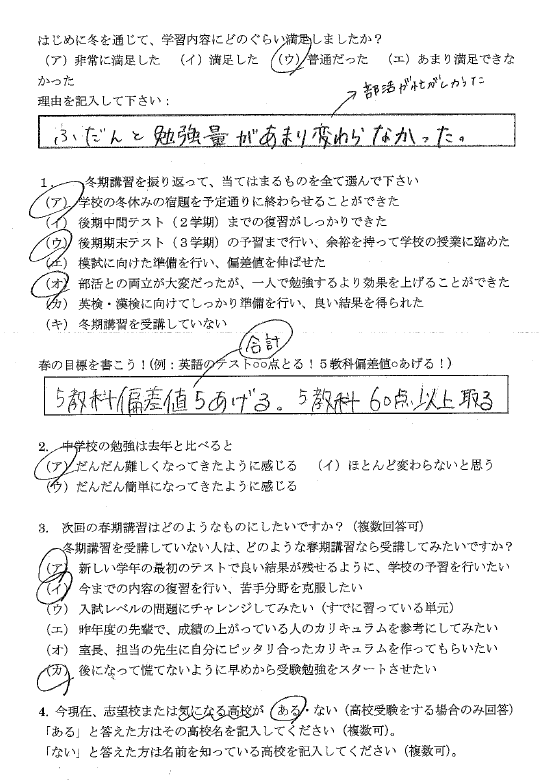 はじめに冬を通じて、学習内容にどのぐらい満足しましたか？
（ア）非常に満足した　（イ）満足した　（ウ）普通だった　（エ）あまり満足できな
かった
理由を記入して下さい：
部活が忙がしかった
ふだんと勉強量があまり変わらなかった。
１．　冬期講習を振り返って、当てはまるものを全て選んで下さい
（ア）学校の冬休みの宿題を予定通りに終わらせることができた
（イ）後期中間テスト（２学期）までの復習がしっかりできた
（ウ）後期期末テスト（３学期）の予習まで行い、余裕を持って学校の授業に臨めた
（エ）模試に向けた準備を行い、偏差値を伸ばせた
（オ）部活との両立が大変だったが、一人で勉強するより効果を上げることができた
（カ）英検・漢検に向けてしっかり準備を行い、良い結果を得られた
（キ）冬期講習を受講していない
合計
春の目標を書こう！(例：英語のテスト○○点とる！５教科偏差値○あげる！)
5教科偏差値5あげる。5教科 60点以上取る
2．中学校の勉強は去年と比べると
（ア）だんだん難しくなってきたように感じる　（イ）ほとんど変わらないと思う
（ウ）だんだん簡単になってきたように感じる
3．次回の春期講習はどのようなものにしたいですか？（複数回答可）
冬期講習を受講していない人は、どのような春期講習なら受講してみたいですか？
（ア）新しい学年の最初のテストで良い結果が残せるように、学校の予習を行いたい
（イ）今までの内容の復習を行い、苦手分野を克服したい
（ウ）入試レベルの問題にチャレンジしてみたい（すでに習っている単元）
（エ）昨年度の先輩で、成績の上がっている人のカリキュラムを参考にしてみたい
（オ）室長、担当の先生に自分にピッタリ合ったカリキュラムを作ってもらいたい
（カ）後になって慌てないように早めから受験勉強をスタートさせたい
4．今現在、志望校または気になる高校が　ある・ない（高校受験をする場合のみ回答）
「ある」と答えた方はその高校名を記入してください（複数可）。
「ない」と答えた方は名前を知っている高校を記入してください（複数可）。